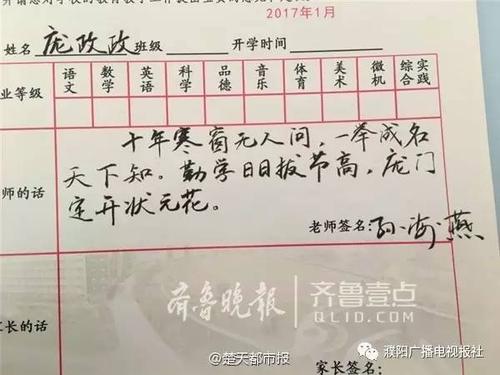 2017年1月
姓名 庞政政 班级 开学时间
业等级 语文 数学 英语 科学 品德 音乐 体育 美术 微机 综合实践
十年寒窗无人问,一举成名
天下知。勤学日日拔节高,庞门
师的话
定开状元花。
老师签名: 孙海燕
齐鲁晚报 齐鲁壹点
QLID.COM
家长的话
@楚天都市报
濮阳广播电视报社
家长签名: